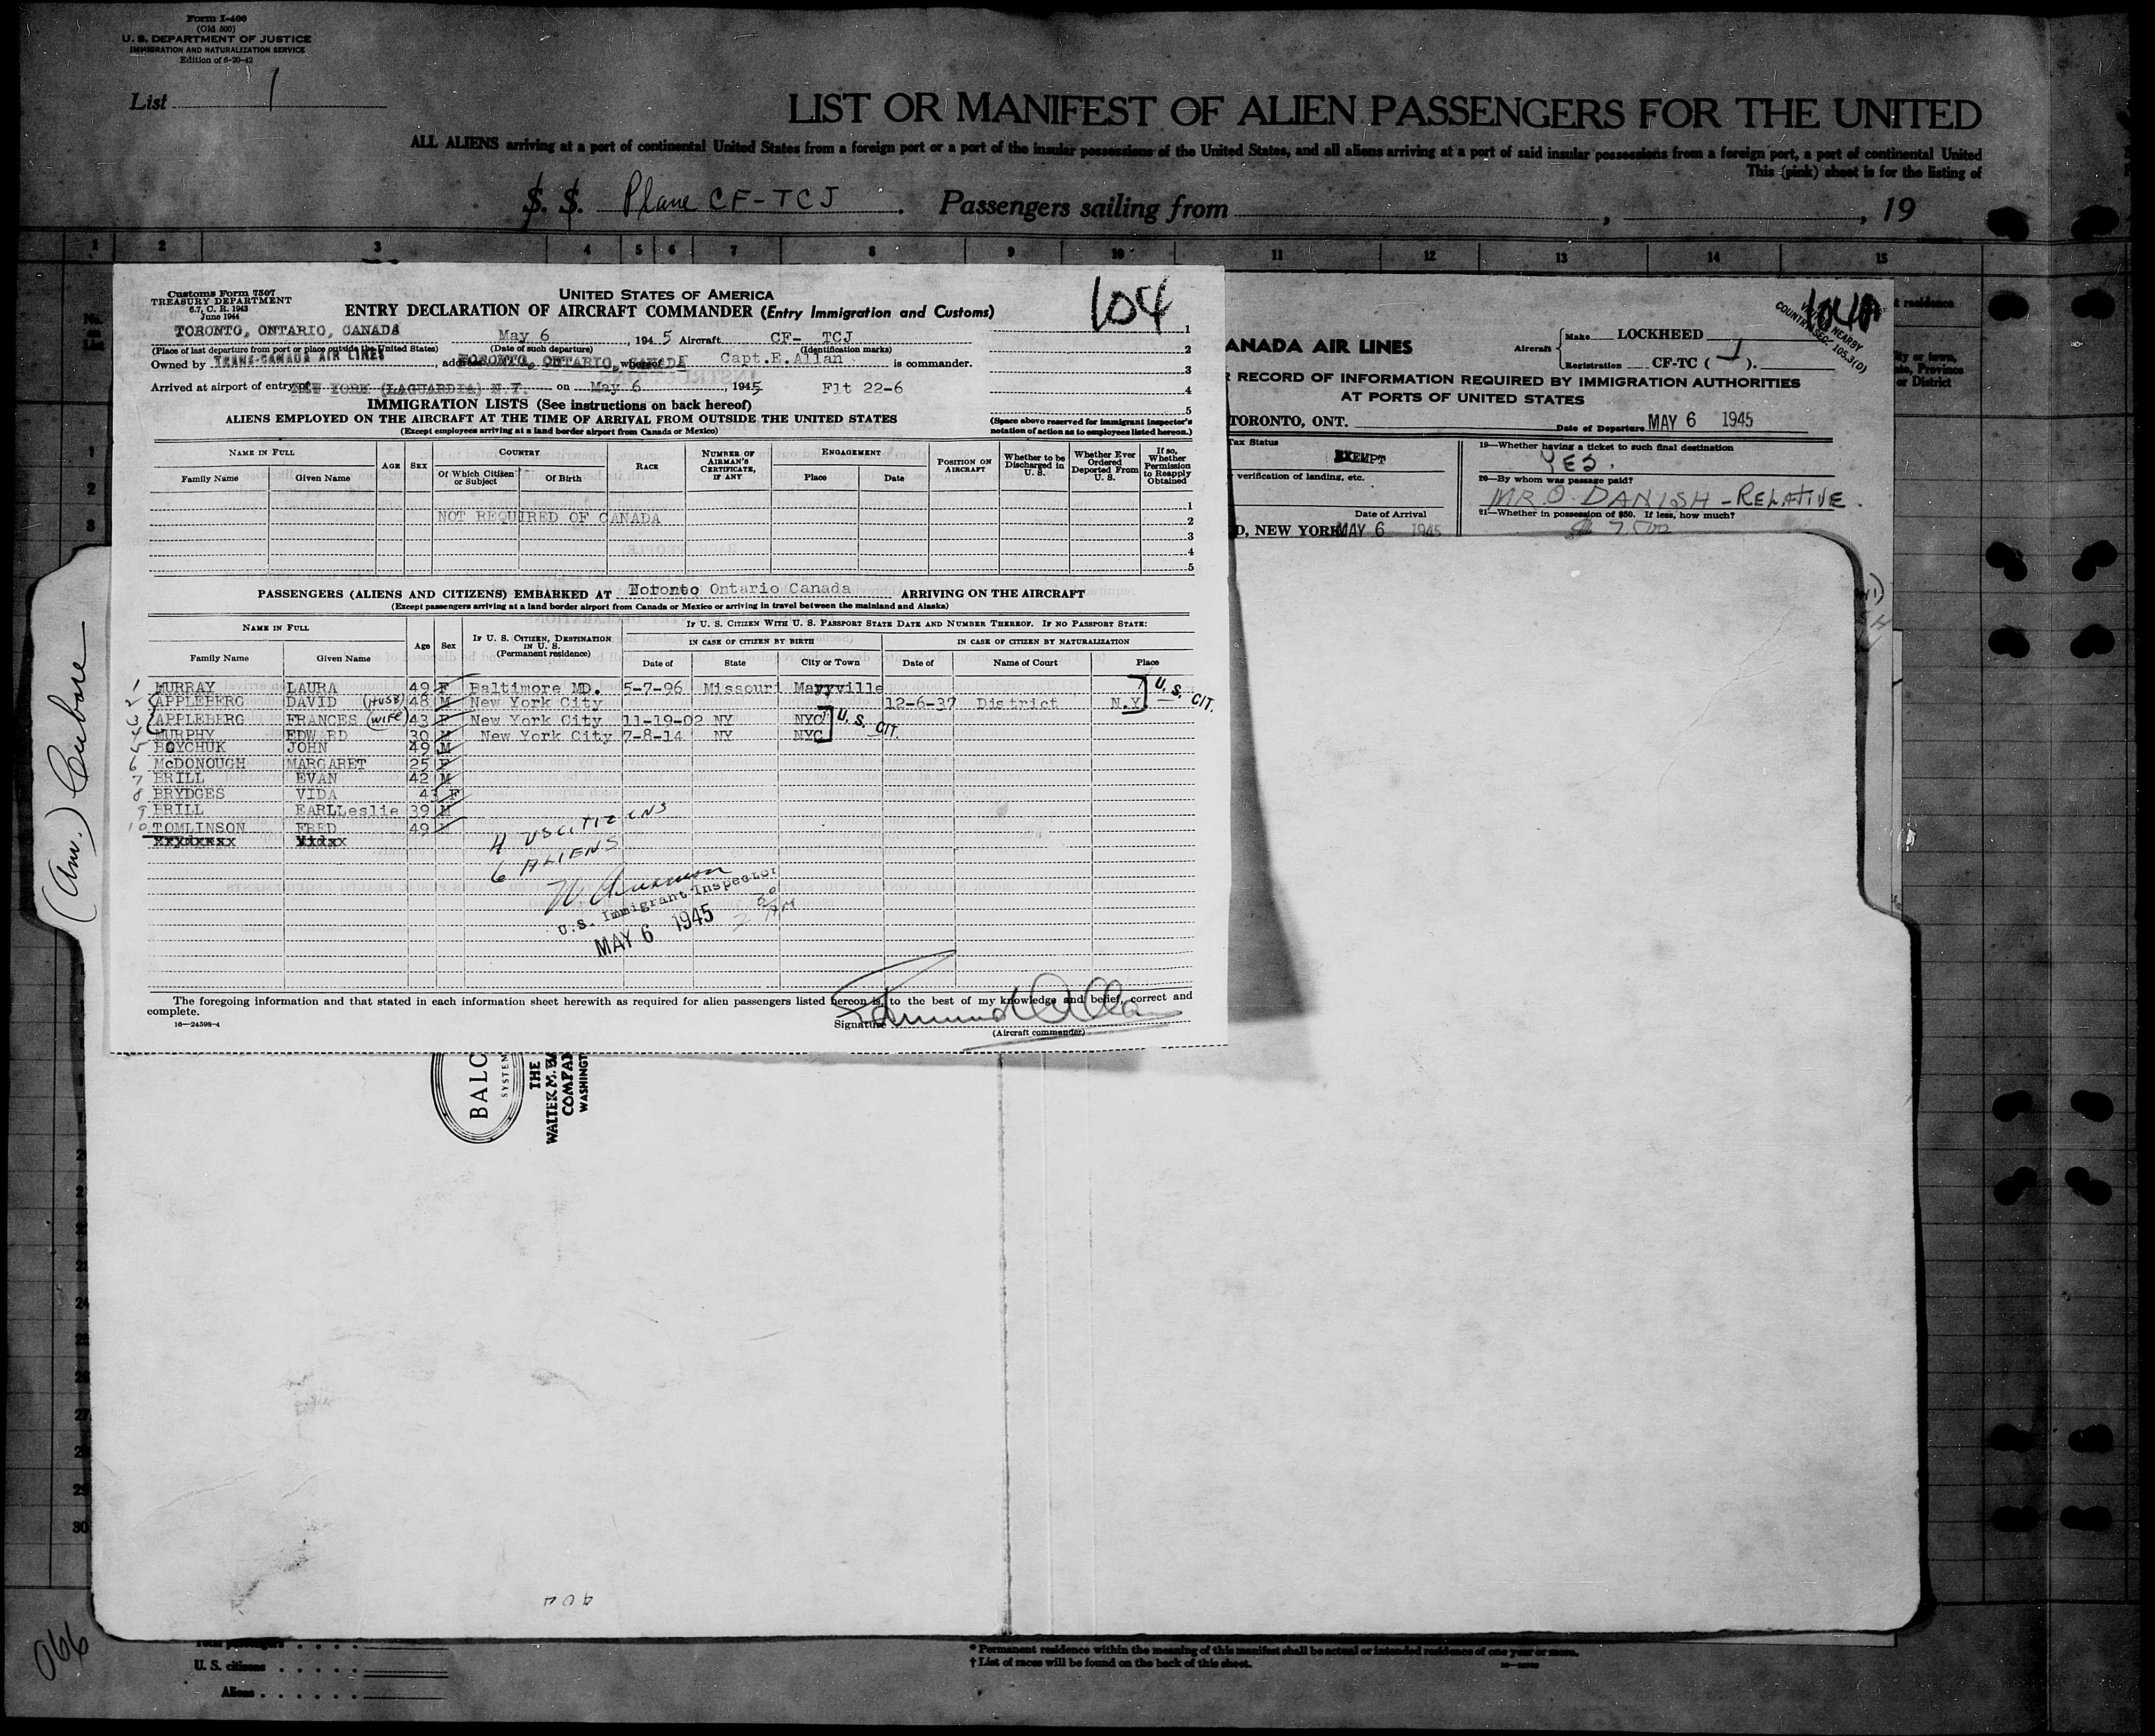 Form I-400
(Old 500)
U. S. DEPARTMENT OF JUSTICE
IMMIGRATION AND NATURALIZATION SERVICE
Edition of 6-20-42
List 1
LIST OR MANIFEST OF ALIEN PASSENGERS FOR THE UNITED
ALL ALIENS arriving at a port of continental United States from a foreign port or a port of the insular possessions of the United States, and all aliens arriving at a port of said insular possessions from a foreign port, a port of continental United
This (pink) sheet is for the listing of
S. S. Plane CF-TCJ. Passengers sailing from , , 19
1 2 3 4 5 6 7 8 9 10 11 12 13 14 15
Customs Form 7507
TREASURY DEPARTMENT
6.7, C. R. 1943
June 1944
UNITED STATES OF AMERICA
ENTRY DECLARATION OF AIRCRAFT COMMANDER (Entry Immigration and Customs)
104
TORONTO, ONTARIO, CANADA May 6, 1945 Aircraft CF- TCJ
(Place of last departure from port or place outside the United States) (Date of such departure) (Identification marks)
Owned by TRANS-CANADA AIR LINES TORONTO, ONTARIO, CANADA Capt.E.Allan is commander.
Arrived at airport of entry of NEW YORK (LAGUARDIA) N.Y. on May 6, 1945 Flt 22-6
IMMIGRATION LISTS (See instructions on back hereof)
ALIENS EMPLOYED ON THE AIRCRAFT AT THE TIME OF ARRIVAL FROM OUTSIDE THE UNITED STATES
(Except employees arriving at a land border airport from Canada or Mexico)
1
2
3
4
5
(Space above reserved for immigrant inspector's
notation of action as to employees listed hereon.)
NAME IN FULL AGE SEX COUNTRY RACE NUMBER OF AIRMAN'S CERTIFICATE, IF ANY ENGAGEMENT POSITION ON AIRCRAFT Whether to be Discharged in U. S. Whether Ever Ordered Deported From U. S. If so, Whether Permission to Reapply Obtained
Family Name Given Name Of Which Citizen or Subject Of Birth Place Date
NOT REQUIRED OF CANADA
1
2
3
4
5
PASSENGERS (ALIENS AND CITIZENS) EMBARKED AT Toronto Ontario Canada ARRIVING ON THE AIRCRAFT
(Except passengers arriving at a land border airport from Canada or Mexico or arriving in travel between the mainland and Alaska)
NAME IN FULL Age Sex IF U. S. CITIZEN, DESTINATION IN U. S. (Permanent residence) IF U. S. CITIZEN WITH U. S. PASSPORT STATE DATE AND NUMBER THEREOF. IF NO PASSPORT STATE:
IN CASE OF CITIZEN BY BIRTH IN CASE OF CITIZEN BY NATURALIZATION
Family Name Given Name Date of State City or Town Date of Name of Court Place
1 MURRAY LAURA 49 F Baltimore MD. 5-7-96 Missouri Maryville
2 APPLEBERG DAVID (HUSB) 48 M New York City 12-6-37 District N.Y. U.S. CIT.
3 APPLEBERG FRANCES (WIFE) 43 F New York City 11-19-02 NY NYC U.S. CIT.
4 MURPHY EDWARD 30 M New York City 7-8-14 NY NYC
5 BOYCHUK JOHN 49 M
6 McDONOUGH MARGARET 25 F
7 BRILL EVAN 42 M
8 BRYDGES VIDA 43 F
9 BRILL EARLLeslie 39 M
10 TOMLINSON FRED 49 M
4 US CITIZENS
6 ALIENS
U.S. Immigrant Inspector
MAY 6 1945
The foregoing information and that stated in each information sheet herewith as required for alien passengers listed hereon is, to the best of my knowledge and belief, correct and
complete.
16—24398-4
Signature
(Aircraft commander)
ANADA AIR LINES
Aircraft Make LOCKHEED
Registration CF-TC ( J ).
NEARBY
COUNTRY SEC. 105.3(D)
RECORD OF INFORMATION REQUIRED BY IMMIGRATION AUTHORITIES
AT PORTS OF UNITED STATES
TORONTO, ONT. Date of Departure MAY 6 1945
Tax Status EXEMPT
verification of landing, etc.
Date of Arrival
D, NEW YORK MAY 6 1945
19—Whether having a ticket to such final destination
YES.
20—By whom was passage paid?
MR. O. DANISH - RELATIVE.
21—Whether in possession of $50. If less, how much?
residence
ity or town,
ate, Province
or District
No.
on
List
1
2
3
(Am.) Cubore
BALC
SYSTEM
THE
WALTER M. BA
COMPA
WASHINGT
24
26
27
28
29
30
404
066
Total passengers
U. S. citizens
Aliens
* Permanent residence within the meaning of this manifest shall be actual or intended residence of one year or more.
† List of races will be found on the back of this sheet.